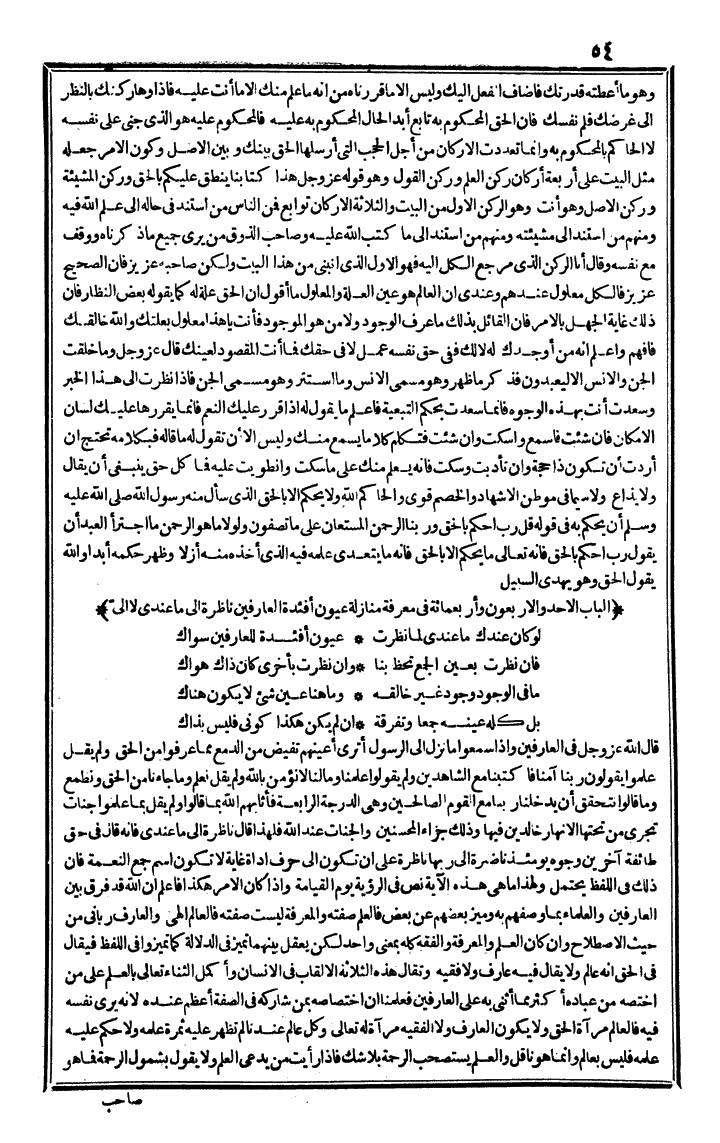 ٥٤
وهو ما أعطته قدرتك فاضاف الفعل اليك وليس الاما قررناه من انه ما علم منك الاما أنت عليه فاذا وهاركنك بالنظر
الى غرضك فلم نفسك فان الحق المحكوم به تابع أبد الحال المحكوم به عليه فالمحكوم عليه هو الذى جنى على نفسه
لا الحاكم بالمحكوم به وانما تعددت الاركان من أجل الحجب التى أرسلها الحق بينك وبين الاصل وكون الامر جعله
مثل البيت على أربعة أركان ركن العلم وركن القول وهو قوله عز وجل هذا كتابنا ينطق عليكم بالحق وركن المشيئة
وركن الاصل وهو أنت وهو الركن الاول من البيت والثلاثة الاركان توابع فمن الناس من استند فى حاله الى علم الله فيه
ومنهم من استند الى مشيئته ومنهم من استند الى ما كتب الله عليه وصاحب الذوق من يرى جميع ماذكرناه ووقف
مع نفسه وقال أنا الركن الذى مرجع الكل اليه فهو الاول الذى انبنى من هذا البيت ولكن صاحبه عزيز فان الصحيح
عزيز فالكل معلول عندهم وعندى ان العالم هو عين العلة والمعلول ما أقول ان الحق علة له كما يقوله بعض النظار فان
ذلك غاية الجهل بالامر فان القائل بذلك ما عرف الوجود ولا من هو الموجود فأنت يا هذا معلول بعلتك والله خالقك
فافهم واعلم انه من أوجدك له لالك ففى حق نفسه عمل لا فى حقك فما أنت المقصود لعينك قال عز وجل وما خلقت
الجن والانس الا ليعبدون فذكر ما ظهر وهو مسمى الانس وما استتر وهو مسمى الجن فاذا نظرت الى هذا الخبر
وسعدت أنت بهذه الوجوه فانما سعدت بحكم التبعية فاعلم ما يقول له اذا قرر عليك النعم فانما يقررها عليك لسان
الامكان فان شئت فاسمع واسكت وان شئت فتكلم كلاما يسمع منك وليس الا أن تقول له ما قاله فبكلامه تحتج ان
أردت أن تكون ذا حجة وان تأدبت وسكت فانه يعلم منك على ما سكت وانطويت عليه فما كل حق ينبغى أن يقال
ولا يذاع ولا سيما فى موطن الاشهاد والخصم قوى والحاكم الله ولا يحكم الا بالحق الذى سأل منه رسول الله صلى الله عليه
وسلم أن يحكم به فى قوله قل رب احكم بالحق وربنا الرحمن المستعان على ما تصفون ولولا ما هو الرحمن ما اجترأ العبد أن
يقول رب احكم بالحق فانه تعالى ما يحكم الا بالحق فانه ما يتعدى علمه فيه الذى أخذه منه أزلا وظهر حكمه أبدا والله
يقول الحق وهو يهدى السبيل
﴿الباب الاحد والاربعون وأربعمائة فى معرفة منازلة عيون أفئدة العارفين ناظرة الى ما عندى لا الىّ﴾
لو كان عندك ما عندى لما نظرت * عيون أفئدة للعارفين سواك
فان نظرت بعين الجمع تحظ بنا * وان نظرت بأخرى كان ذاك هواك
ما فى الوجود وجود غير خالقه * وما هنا عين شئ لا يكون هناك
بل كله عينه جمعا وتفرقة * ان لم يكن هكذا كونى فليس بذاك
قال الله عز وجل فى العارفين واذا سمعوا ما نزل الى الرسول أترى أعينهم تفيض من الدمع مما عرفوا من الحق ولم يقل
علموا يقولون ربنا آمنا فاكتبنا مع الشاهدين ولم يقولوا علمنا وما لنا لانؤمن بالله ولم يقل نعلم وما جاءنا من الحق ونطمع
وما قالوا نتحقق أن يدخلنا ربنا مع القوم الصالحين وهى الدرجة الرابعة فأثابهم الله بما قالوا ولم يقل بما علموا جنات
تجرى من تحتها الانهار خالدين فيها وذلك جزاء المحسنين والجنات عند الله فلهذا قال ناظرة الى ما عندى فانه قال فى حق
طائفة آخرين وجوه يومئذ ناضرة الى ربها ناظرة على ان تكون الى حرف اداة غاية لا تكون اسم جمع النعمة فان
ذلك فى اللفظ يحتمل ولهذا ما هى هذه الآية نص فى الرؤية يوم القيامة واذا كان الامر هكذا فاعلم ان الله قد فرق بين
العارفين والعلماء بما وصفهم به وميز بعضهم عن بعض فالعلم صفته والمعرفة ليست صفته فالعالم الهى والعارف ربانى من
حيث الاصطلاح وان كان العلم والمعرفة والفقه كله بمعنى واحد لكن يعقل بينهما تميز فى الدلالة كما تميزوا فى اللفظ فيقال
فى الحق انه عالم ولا يقال فيه عارف ولا فقيه وتقال هذه الثلاثة الالقاب فى الانسان وأكمل الثناء تعالى بالعلم على من
اختصه من عباده أكثر مما أثنى به على العارفين فعلمنا ان اختصاصه بمن شاركه فى الصفة أعظم عنده لانه يرى نفسه
فيه فالعالم مرآة الحق ولا يكون العارف ولا الفقيه مرآة له تعالى وكل عالم عندنا لم تظهر عليه ثمرة علمه ولا حكم عليه
علمه فليس بعالم وانما هو ناقل والعلم يستصحب الرحمة بلا شك فاذا رأيت من يدعى العلم ولا يقول بشمول الرحمة فما هو
صاحب